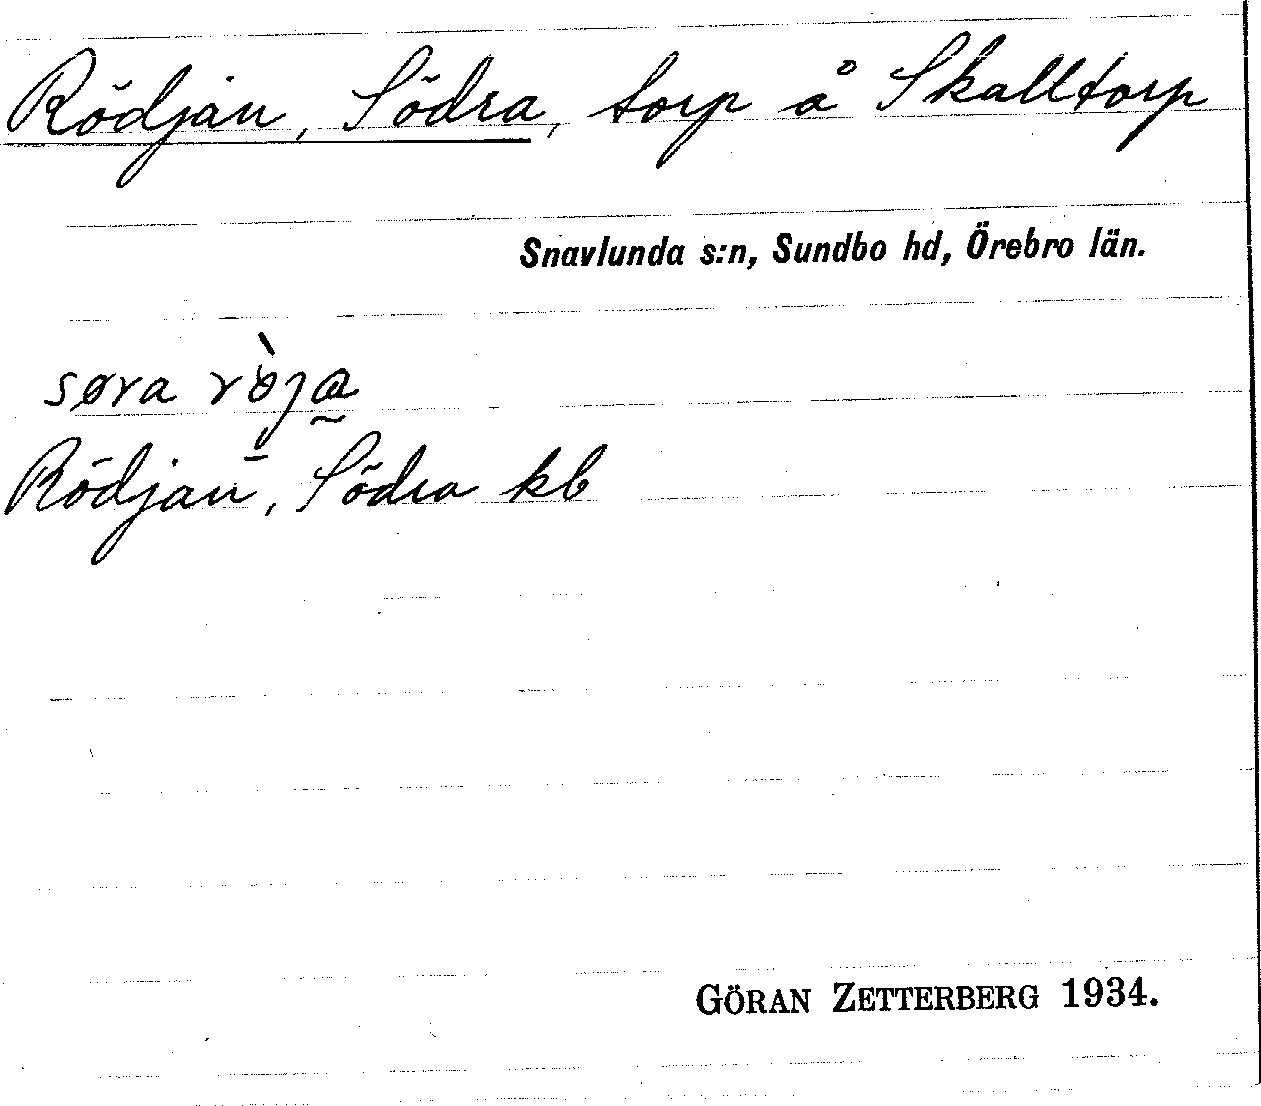 Rödjan, Södra, torp å Skalltorp
Snavlunda s:n, Sundbo hd, Örebro län.
søra
Rödjan, Södra kb
GÖRAN ZETTERBERG 1934.